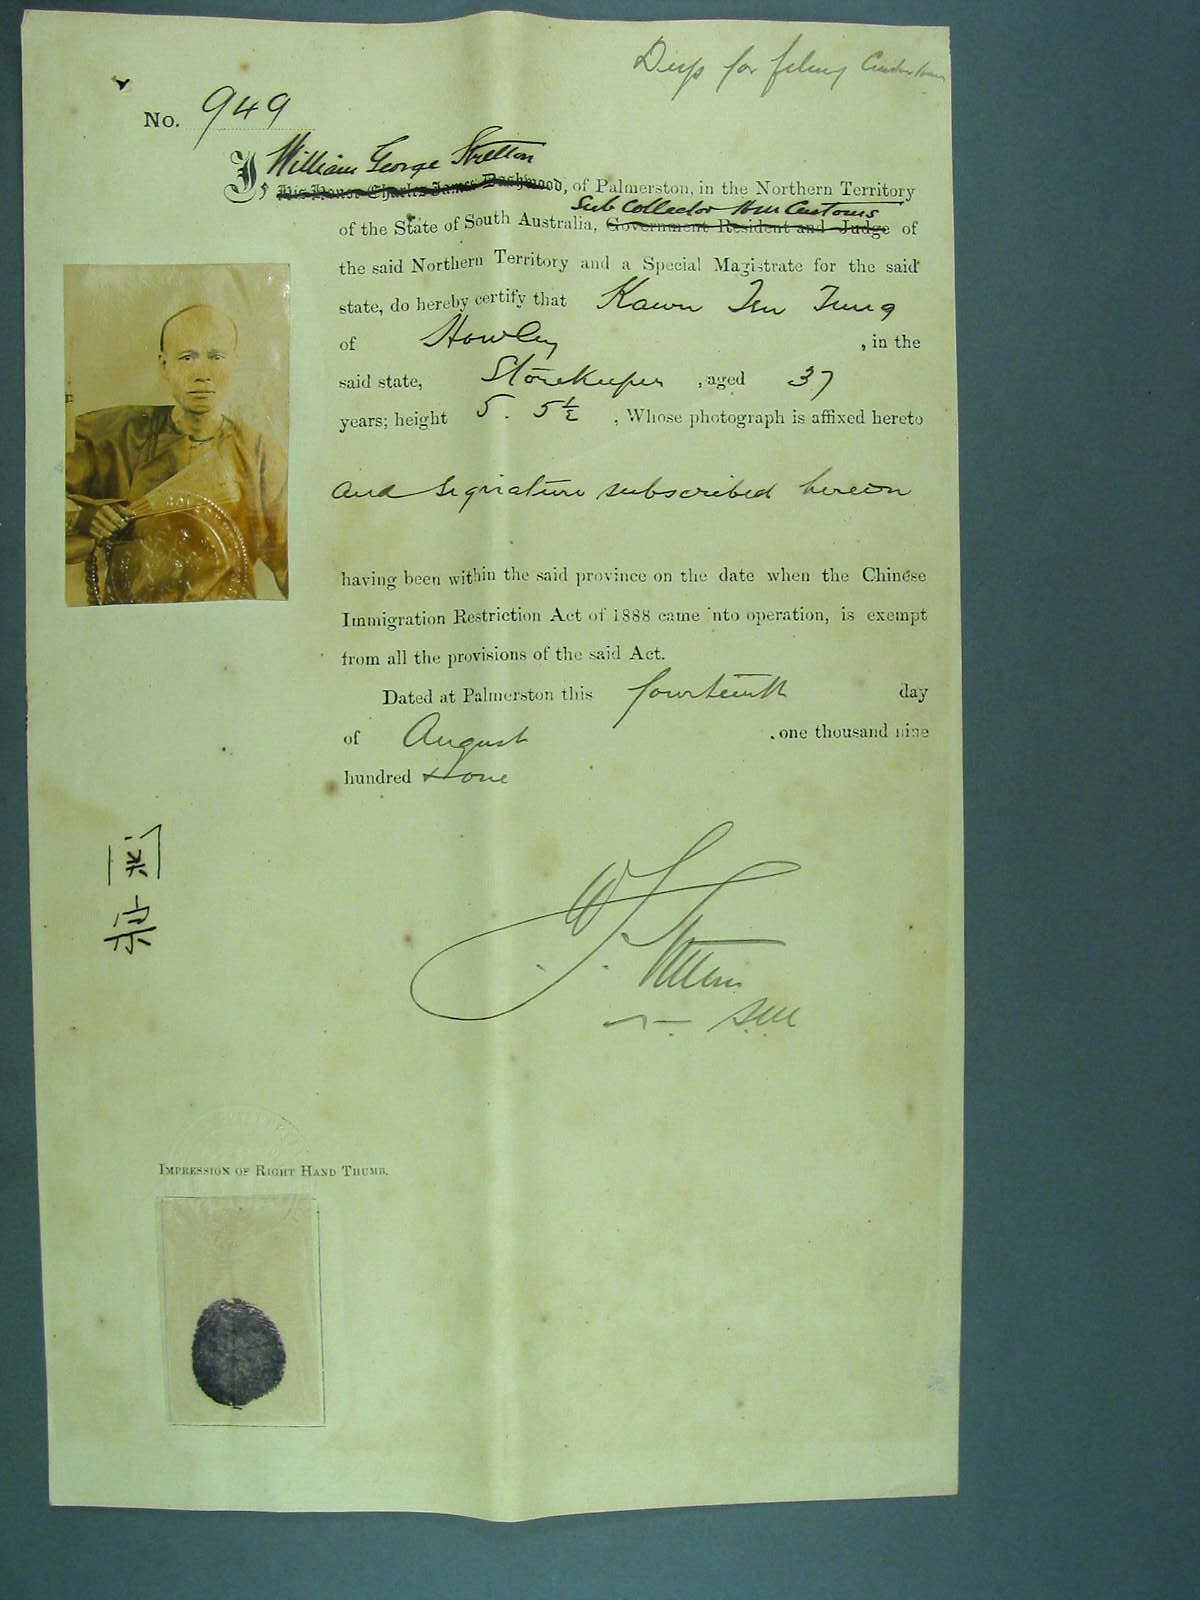 Dup for filing
No. 949
William George Stretton
I, His Honor Charles James Dashwood, of Palmerston, in the Northern Territory
Sub Collector H M Customs
of the State of South Australia, Government Resident and Judge of
the said Northern Territory and a Special Magistrate for the said
state, do hereby certify that Kawn Ten Tung
of Howley , in the
said state, Storekeeper , aged 37
years; height 5. 5½ , Whose photograph is affixed hereto
and signature subscribed hereon
having been within the said province on the date when the Chinese
Immigration Restriction Act of 1888 came nto operation, is exempt
from all the provisions of the said Act.
Dated at Palmerston this fourteenth day
of August , one thousand nine
hundred & one
W. G. Stretton
S.M
宗
IMPRESSION OF RIGHT HAND THUMB.